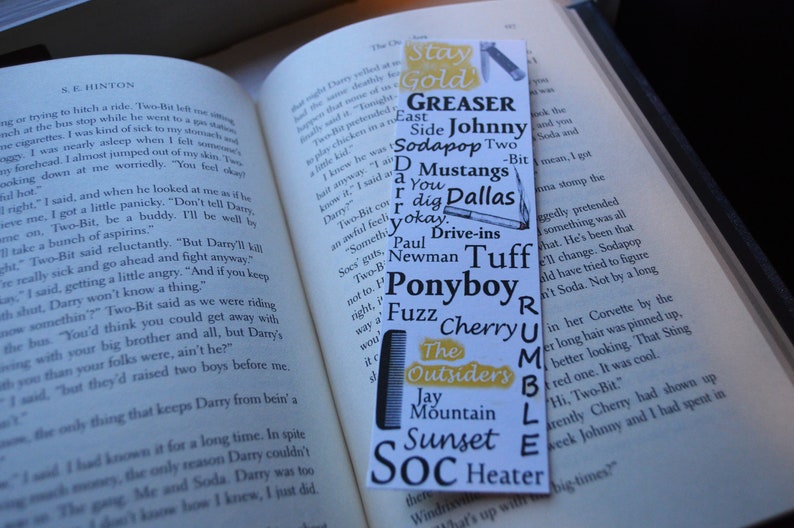 S. E. HINTON
ng or trying to hitch a ride. Two-Bit left me sitting
at the bus stop while he went to a gas station
me cigarettes. I was kind of sick to my stomach and
oggy. I was nearly asleep when I felt someone's
my forehead. I almost jumped out of my skin. Two-
ooking down at me worriedly. "You feel okay?
ful hot."
ll right," I said, and when he looked at me as if he
ieve me, I got a little panicky. "Don't tell Darry,
ome on, Two-Bit, be a buddy. I'll be well by
'll take a bunch of aspirins."
ht," Two-Bit said reluctantly. "But Darry'll kill
're really sick and go ahead and fight anyway."
," I said, getting a little angry. "And if you keep
th shut, Darry won't know a thing."
now somethin'?" Two-Bit said as we were riding
the bus. "You'd think you could get away with
iving with your big brother and all, but Darry's
than your folks were, ain't he?"
I said, "but they'd raised two boys before me.
now, the only thing that keeps Darry from bein' a
I said. I had known it for a long time. In spite
much money, the only reason Darry couldn't
the gang. Me and Soda. Darry was too
how I knew, I just did.
The
that night Darry yelled at
had the same deathly fe
happen that none of us c
finally said it. "Tonight—
Two-Bit pretended
to play chicken in a ru
a little kid."
"I knew he
bait anyway." I
know it" I said
Darry?"
Two-Bit
an awful feeli
"Somethi
Socs' guts.
not to. I
Two-Bi
'Stay
Gold'
GREASER
East
Side Johnny
Sodapop Two
-Bit
Darry
Mustangs
You
dig
okay.
Dallas
Drive-ins
Paul
Newman Tuff
Ponyboy
Fuzz Cherry
RUMBLE
The
Outsiders
Jay
Mountain
Sunset
Soc Heater
I mean, I got
onna stomp the
ggedly pretended
something was all
what. He's been that
oldier. Sodapop
could have tried to figure
n't Soda. Not by a long
in her Corvette by the
er long hair was pinned up,
better looking. That Sting
red one. It was cool.
"Hi, Two-Bit."
arently Cherry had shown up
week Johnny and I had spent in
Windrixville
What's up with the big-times?"